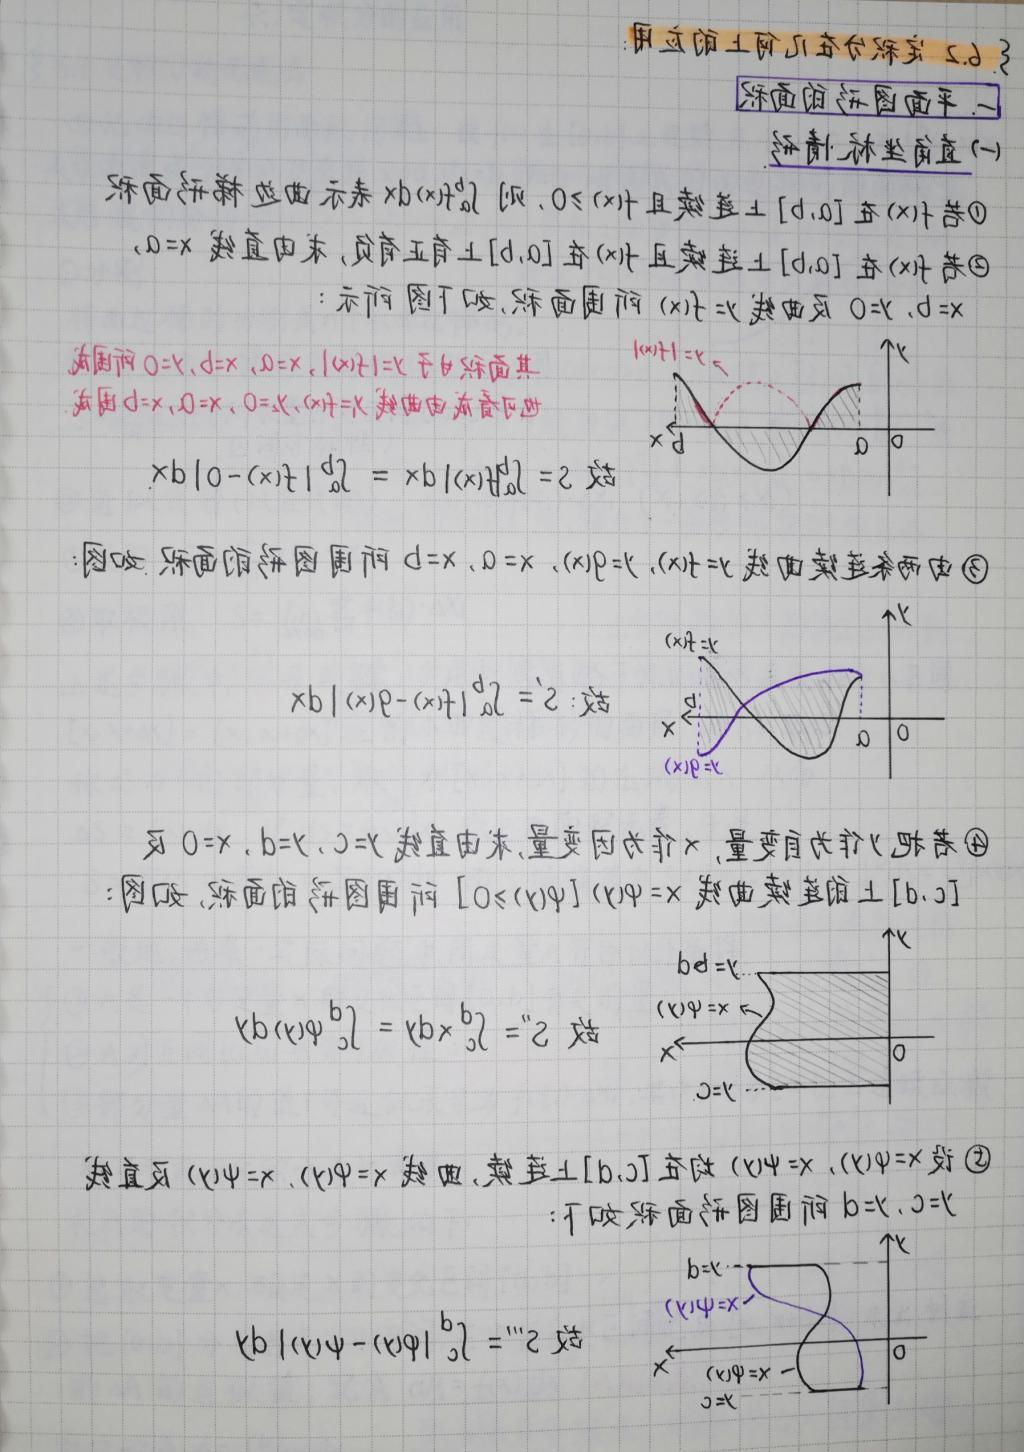 §6.2 定积分在几何上的应用:
一. 平面图形的面积
(一) 直角坐标情形
① 若 f(x) 在 [a,b] 上连续且 f(x)≥0, 则 ∫ₐᵇf(x)dx 表示曲边梯形面积
② 若 f(x) 在 [a,b] 上连续且 f(x) 在 [a,b] 上有正有负, 求由直线 x=a,
x=b, y=0 及曲线 y=f(x) 所围面积, 如下图所示:
y
y=|f(x)|
0
a
b
x
其面积由于 y=|f(x)|, x=a, x=b, y=0 所围成
也可看成由曲线 y=f(x), y=0, x=a, x=b 围成
故 S = ∫ₐᵇ|f(x)|dx = ∫ₐᵇ|f(x)-0|dx
③ 由两条连续曲线 y=f(x), y=g(x), x=a, x=b 所围图形的面积 如图:
y
y=f(x)
0
a
b
x
y=g(x)
故: S' = ∫ₐᵇ|f(x)-g(x)|dx
④ 若把 y 作为自变量, x 作为因变量, 求由直线 y=c, y=d, x=0 及
[c,d] 上的连续曲线 x=φ(y) [φ(y)≥0] 所围图形的面积, 如图:
y
y=d
x=φ(y)
0
x
y=c
故 S'' = ∫_c^d xdy = ∫_c^d φ(y)dy
⑤ 设 x=φ(y), x=ψ(y) 均在 [c,d] 上连续, 曲线 x=φ(y), x=ψ(y) 及直线
y=c, y=d 所围图形面积如下:
y
y=d
x=ψ(y)
0
x
x=φ(y)
y=c
故 S''' = ∫_c^d |φ(y)-ψ(y)|dy